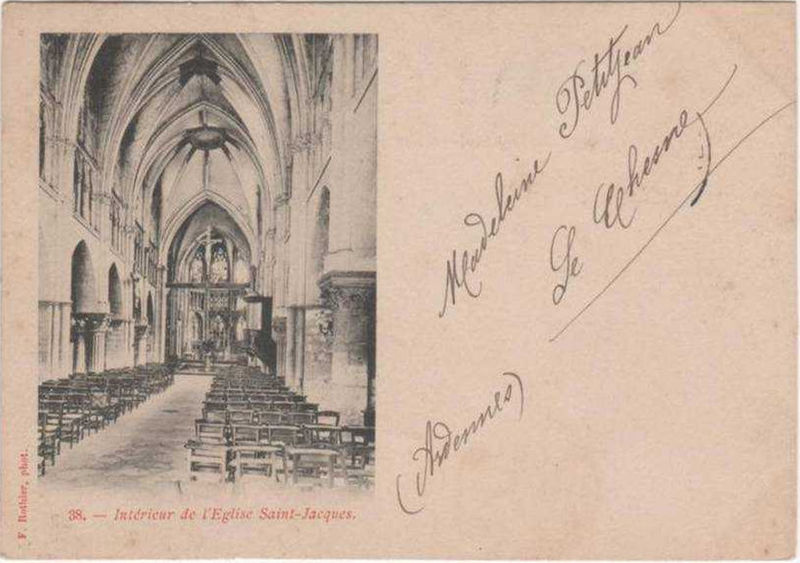 Madeleine Petitjean
Le Chesne
(Ardennes)
38. — Intérieur de l'Eglise Saint-Jacques.
F. Rothier, phot.